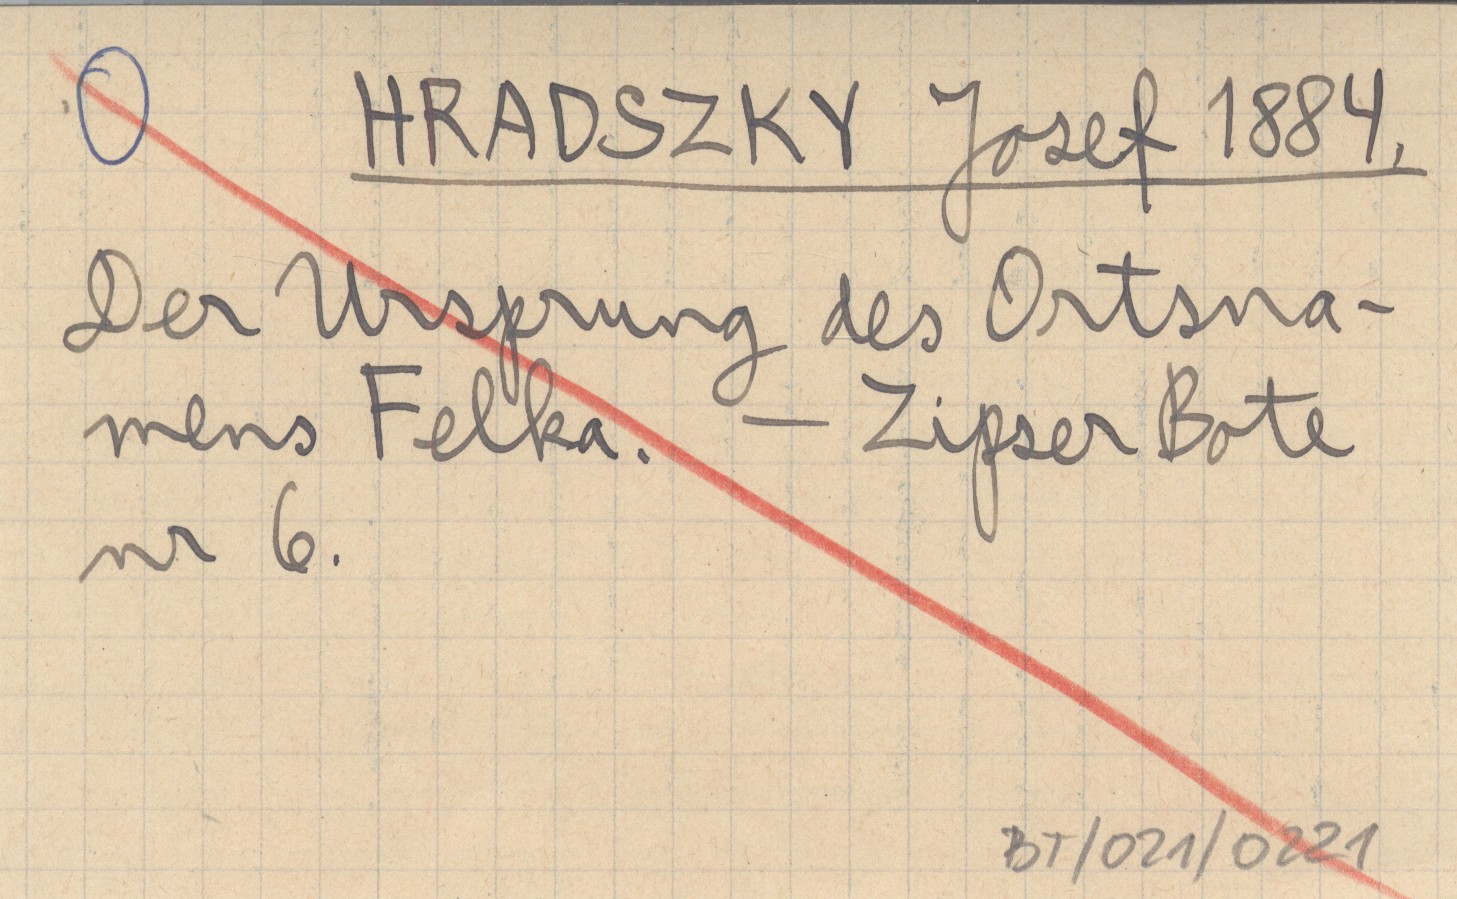 HRADSZKY Josef 1884,
Der Ursprung des Ortsna-
mens Felka. — Zipser Bote
nr 6.
BT/021/0221